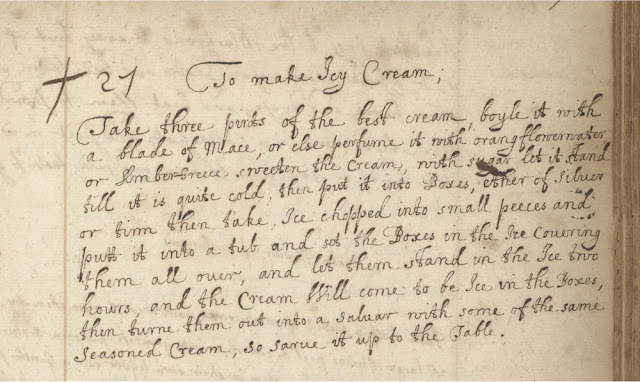 27 To make Icy Cream;
Take three pints of the best cream, boyle it with
a blade of Mace, or else perfume it with orangflowerwater
or Ambergreece sweeten the Cream, with sugar let it stand
till it is quite cold, then put it into Boxes, ether of Silver
or tinn then take, Ice chopped into small peeces and
putt it into a tub and set the Boxes in the Ice Covering
them all over, and let them stand in the Ice two
hours, and the Cream Will come to be Ice in the Boxes,
then turne them out into a salvar with some of the same
Seasoned Cream, so sarve it up to the Table.